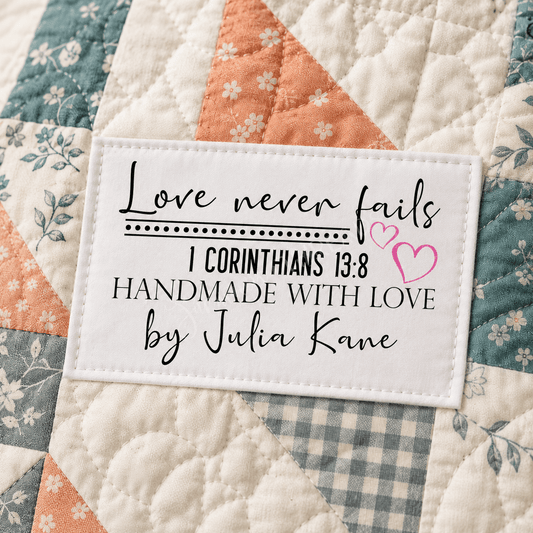 Love never fails
1 CORINTHIANS 13:8
HANDMADE WITH LOVE
by Julia Kane